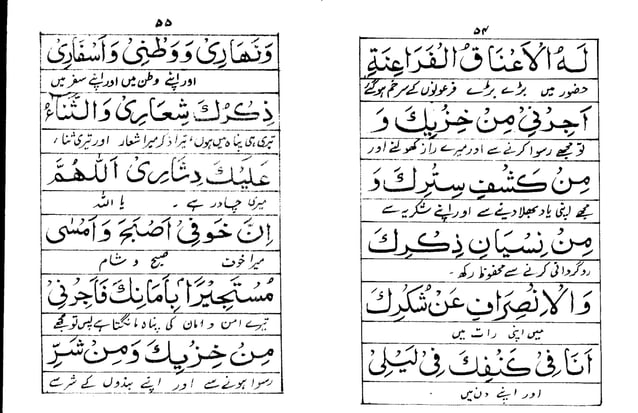 ۵۴
لَهُ الْاَعْنَاقُ الْفَرَاعِنَةِ
حضور میں بڑے بڑے فرعونوں کے سر خم ہوگئے
اَجِرْنِيْ مِنْ خِزْيِكَ وَ
تو مجھے رسوا کرنے سے اور میرے راز کھولنے اور
مِنْ كَشْفِ سِتْرِكَ وَ
مجھے اپنی یاد بھلا دینے سے اور اپنے شکریہ سے
مِنْ نِسْيَانِ ذِكْرِكَ
روگردانی کرنے سے محفوظ رکھ۔
وَالْاِنْصِرَافِ عَنْ شُكْرِكَ
میں اپنی رات میں
اَنَا فِيْ كَنَفِكَ فِيْ لَيْلِيْ
اور اپنے دن میں
۵۵
وَنَهَارِيْ وَوَطَنِيْ وَاَسْفَارِيْ
اور اپنے وطن میں اور اپنے سفر میں
ذِكْرُكَ شِعَارِيْ وَالثَّنَاءُ
تیری ہی پناہ میں ہوں، تیرا ذکر میرا شعار اور تیری ثناء
عَلَيْكَ دِثَارِيْ اَللّٰهُمَّ
میری چادر ہے۔ یا اللہ
اِنَّ خَوْفِيْ اَصْبَحَ وَاَمْسٰى
میرا خوف صبح و شام
مُسْتَجِيْرًا بِاَمَانِكَ فَاَجِرْنِيْ
تیرے امن و امان کی پناہ مانگتا ہے پس تو مجھے
مِنْ خِزْيِكَ وَمِنْ شَرِّ
رسوا ہونے سے اور اپنے بندوں کے شر سے